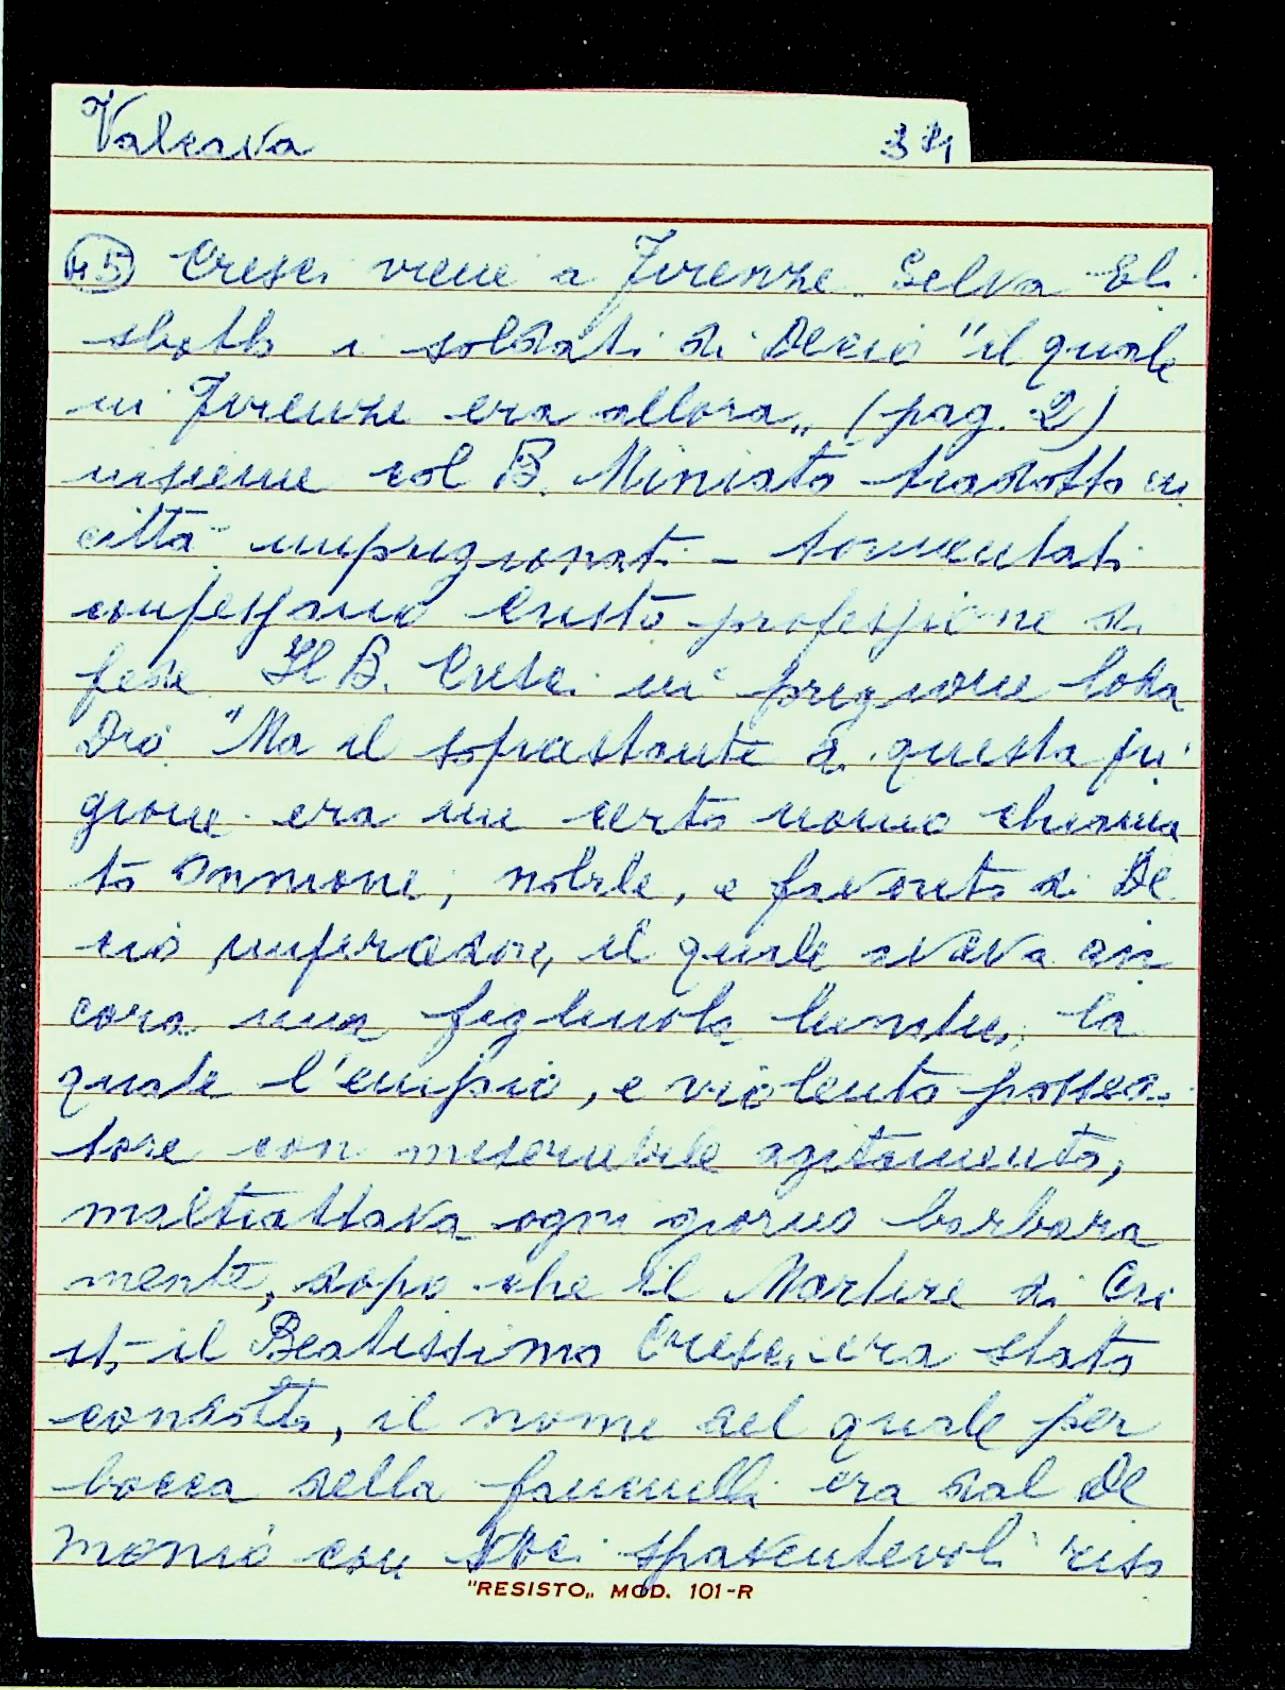 Valcava 34
45 Cresci viene a Firenze. Selva Eli
sbotto i soldati di Decio "il quale
in Firenze era allora„ (pag. 2)
insieme col B. Miniato tradotto in
città imprigionati – tormentati
confessano Cristo professione di
fede Il B. Cresci in prigione loda
Dio "Ma il soprastante di questa pri
gione era un certo uomo chiama
to Onnione, nobile, e favorito di De
cio imperadore, il quale aveva an
cora una figliuola
quale l'empio, e violento possedi
tore con miserabile agitamento,
maltrattava ogni giorno barbara
mente, dopo che il Martire di Cri
sto il Beatissimo Cresci era stato
condotto, il nome del quale per
bocca della fanciulla era dal De
monio con voci spaventevoli
"RESISTO„ MOD. 101-R